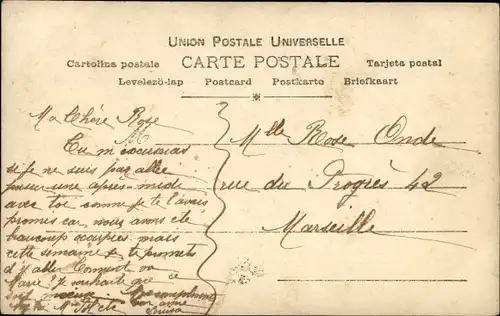 UNION POSTALE UNIVERSELLE
CARTE POSTALE
Cartolina postale
Tarjeta postal
Levelező-lap Postcard Postkarte Briefkaart
Ma Chère Rose
Tu m'excuseras
si je ne suis pas allée
passer une après-midi
avec toi comme je te l'avais
promis car nous avons été
beaucoup occupées mais
cette semaine je te promets
d'y aller Comment va
Marie? Je souhaite que
soit mieux
ton amie
Louisa
Mlle Rose Onde
rue du Progrès 42
Marseille